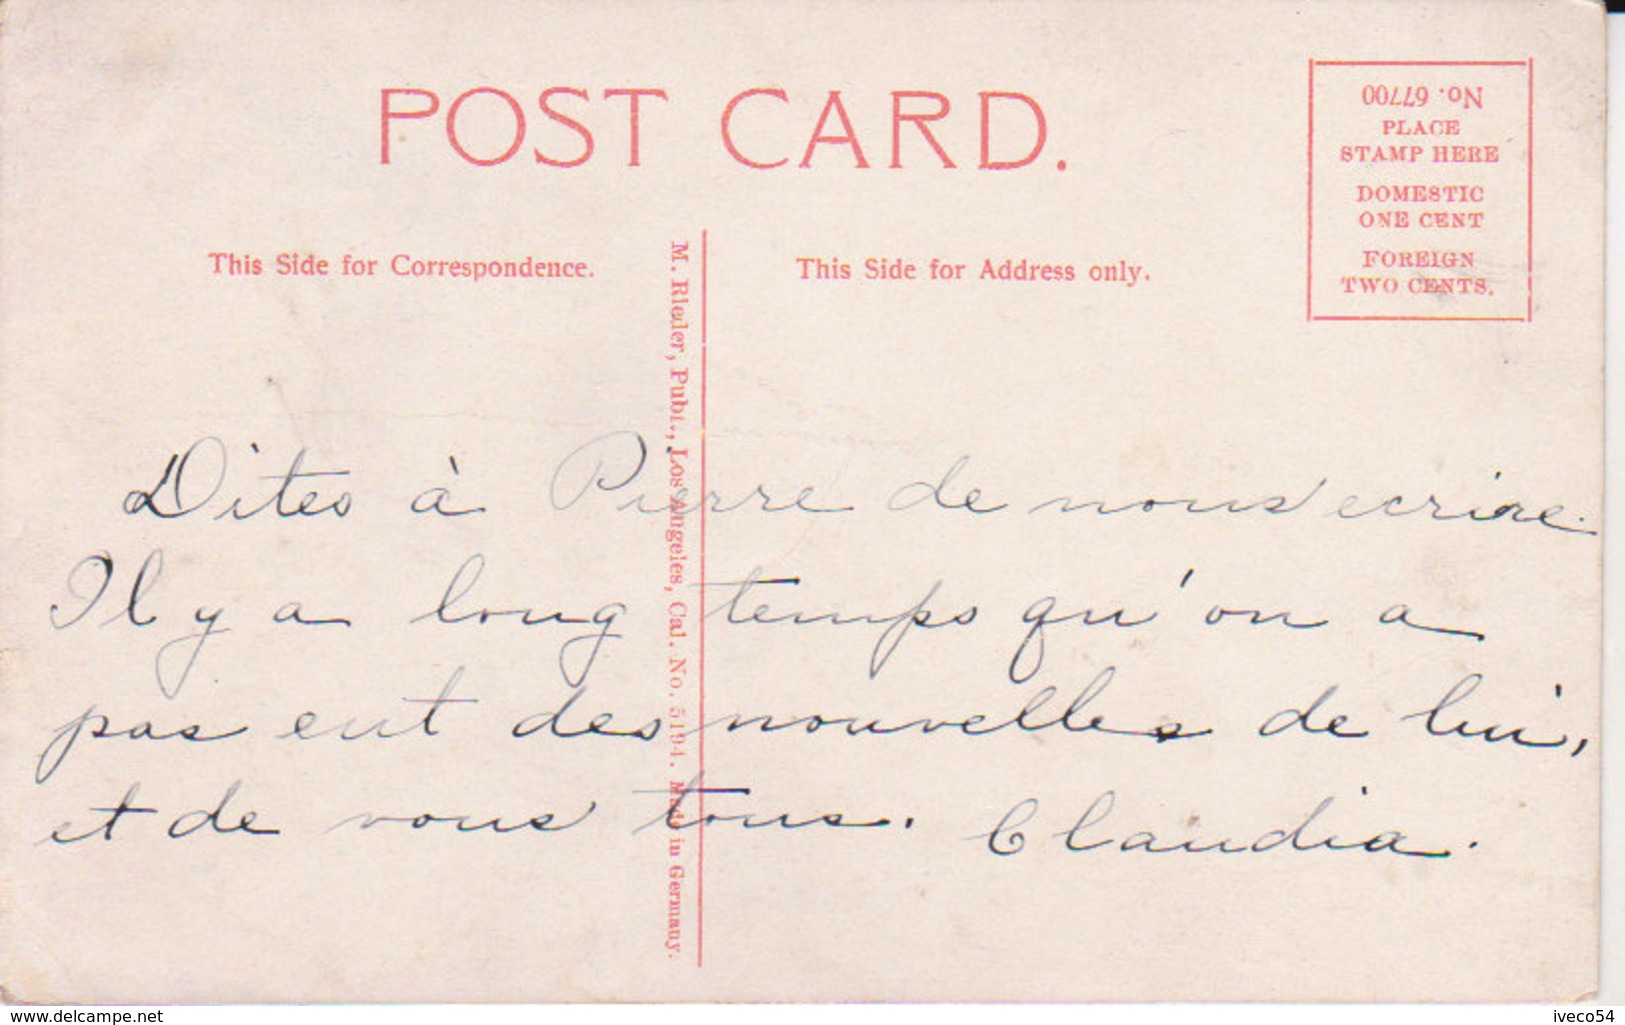 POST CARD.
No. 67700
PLACE
STAMP HERE
DOMESTIC
ONE CENT
FOREIGN
TWO CENTS.
This Side for Correspondence.
This Side for Address only.
M. Rieder, Publ., Los Angeles, Cal. No. 5194. Made in Germany.
Dites à Pierre de nous ecrire.
Il y a long temps qu'on a
pas eut des nouvelles de lui,
et de vous tous. Claudia.
www.delcampe.net
iveco54